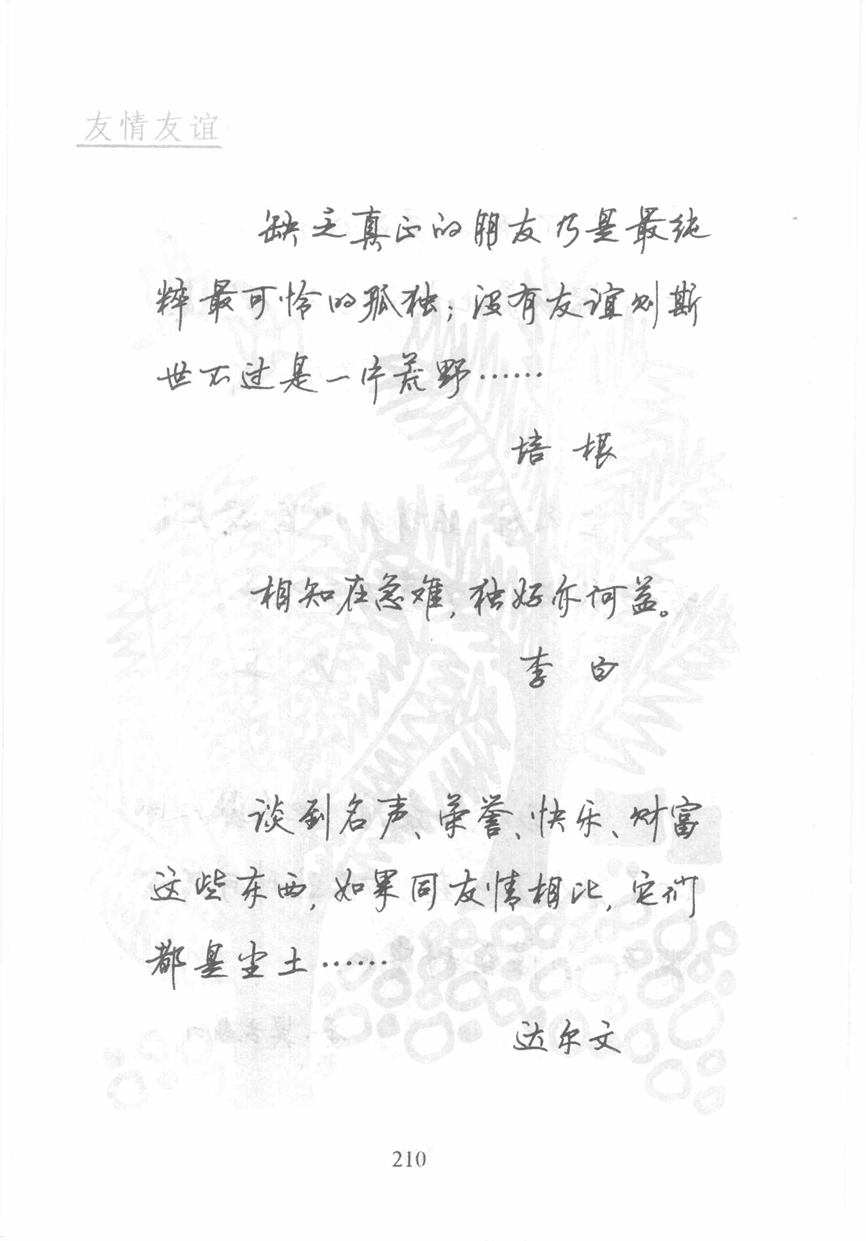 友情友谊
缺乏真正的朋友乃是最纯
粹最可怜的孤独；没有友谊则斯
世不过是一片荒野……
培根
相知在急难，独好亦何益。
李白
谈到名声、荣誉、快乐、财富
这些东西，如果同友情相比，它们
都是尘土……
达尔文
210